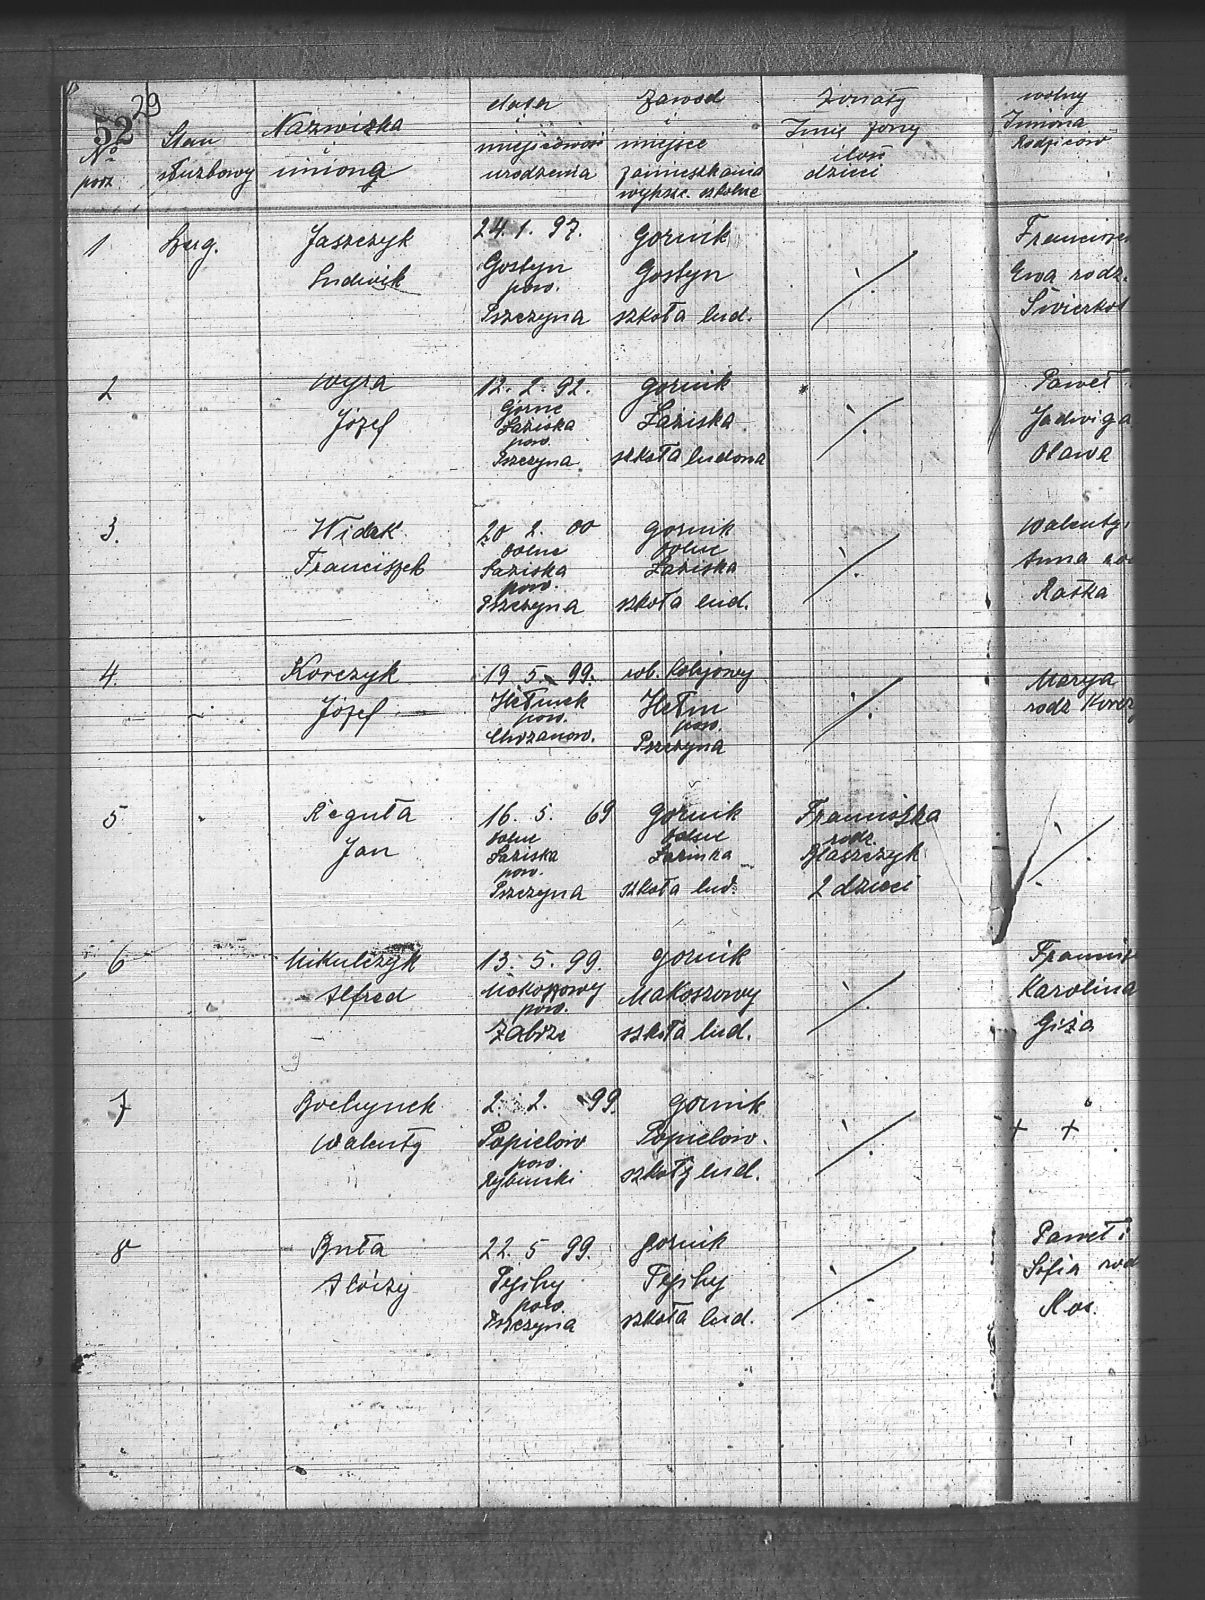 29
52
No porz
Stan służbowy
Nazwiska i imiona
data i miejscowość urodzenia
Zawod i miejsce zamieszkania wyksz. szkolne
Żonaty Imię żony ilość dzieci
wolny Imiona Rodziców
1 Szereg. Jaszczyk Ludwik
24. 1. 97. Gostyn pow. Pszczyna
gornik Gostyn szkoła lud.
Ewa rodz.
2 Wyra Józef
12. 2. 92. Górne Łaziska pow. Pszczyna
gornik Łaziska szkoła ludowa
Paweł
Jadwiga
Oława
3. Widek Franciszek
20 2. 00 Dolne Łaziska pow. Pszczyna
gornik Dolne Łaziska szkoła lud.
Anna
Ratka
4. Korczyk Józef
19. 5. 99. Hełmek pow. Chrzanow.
rob. kolejowy Hełm pow. Pszczyna
Marya
rodz
5 Reguła Jan
16. 5. 69 Dolne Łaziska pow. Pszczyna
gornik Dolne Łaziska szkoła lud.
Franciszka rodz. Błaszczyk 2 dzieci
6 Mikulczyk Alfred
13. 5. 99. Makoszowy pow. Zabrze
gornik Makoszowy szkoła lud.
Karolina
Giża
7 Bochynek Walenty
2. 2. 99. Popielow pow. Rybnicki
gornik Popielow. szkoły lud.
+ +
8 Buła Aloizy
22. 5 99. Tychy pow. Pszczyna
gornik Tychy szkoła lud.
Paweł i
Sofia rod
Kos.